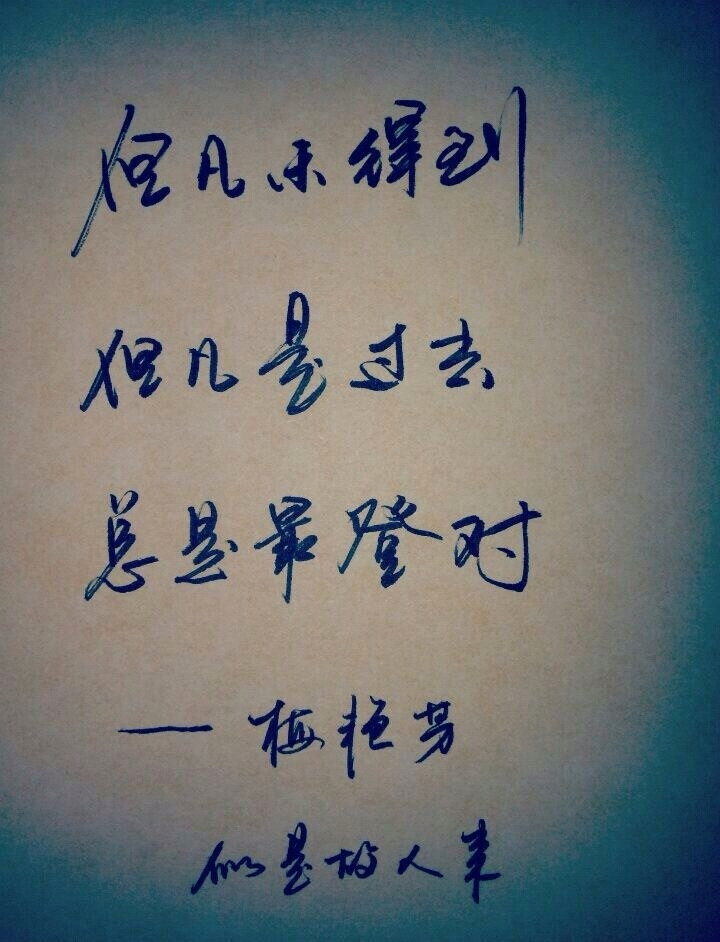 但凡未得到
但凡是过去
总是最登对
——梅艳芳
似是故人来